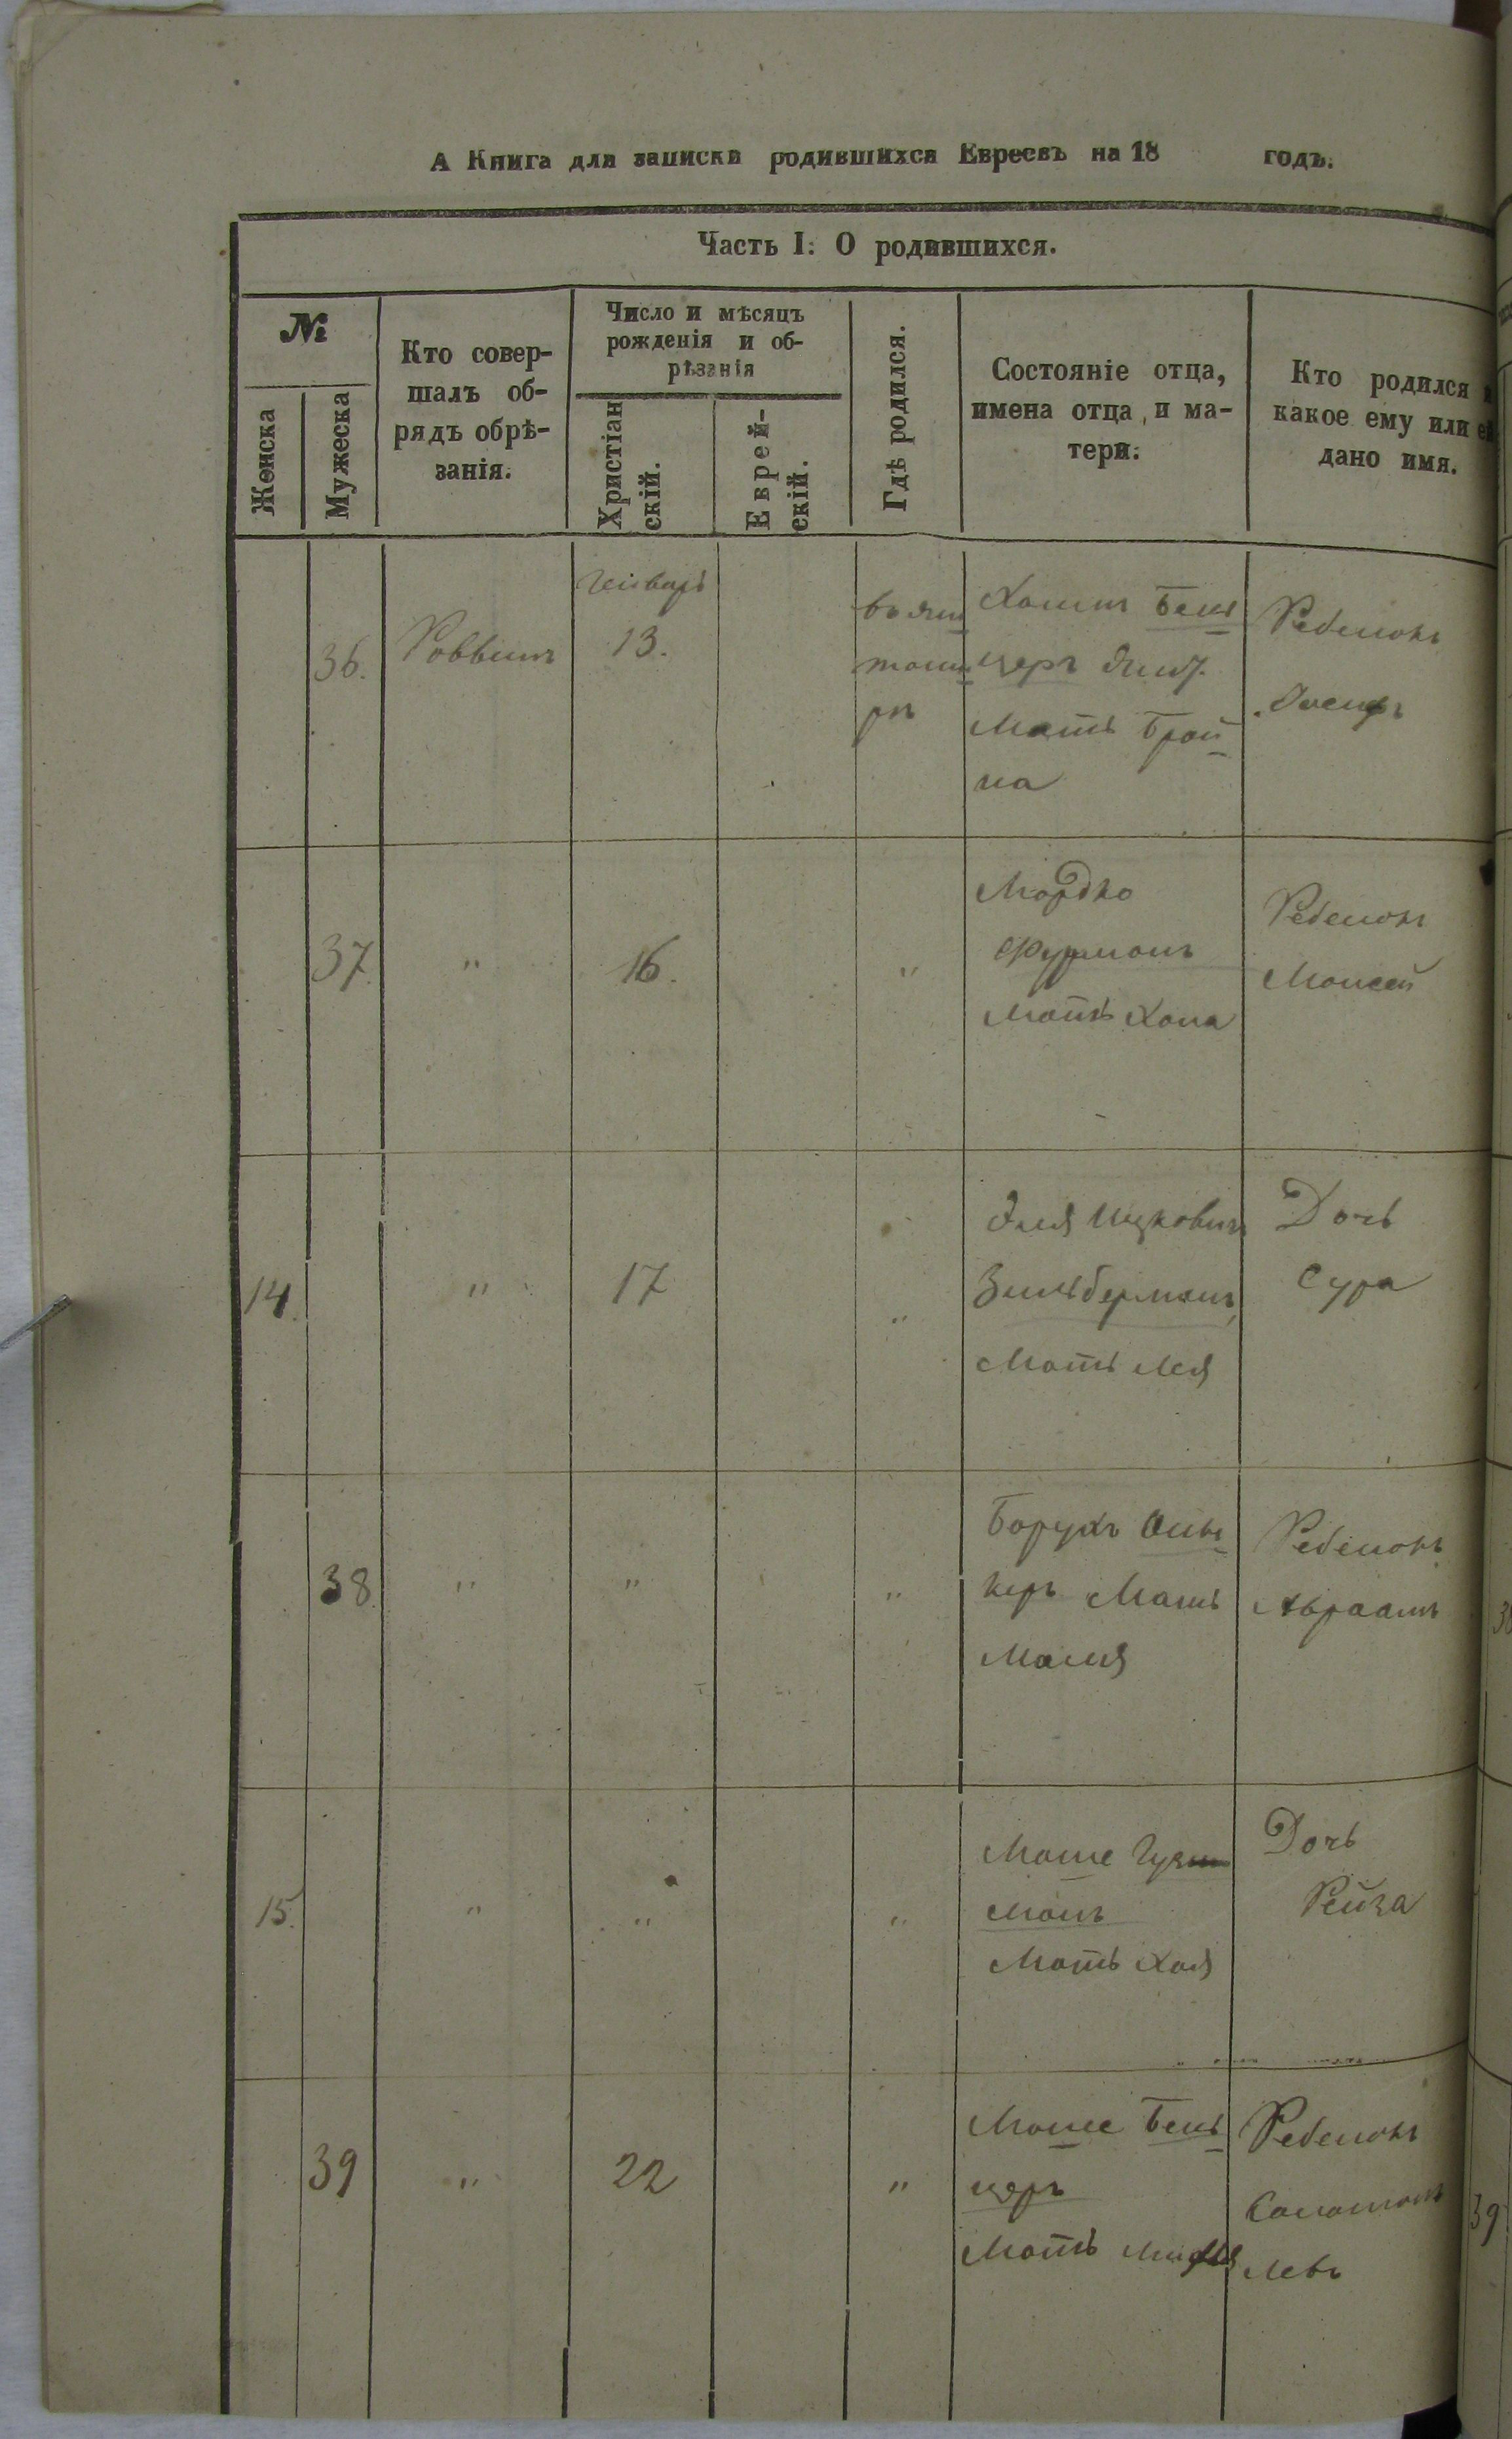 А Книга для записки родившихся Евреевъ на 18 годъ.
Часть I: О родившихся.
№
Женска
Мужеска
Кто совер-
шалъ об-
рядъ обрѣ-
занія.
Число и мѣсяцъ
рожденія и об-
рѣзанія
Христіан
скій.
Еврей-
скій.
Гдѣ родился.
Состояніе отца,
имена отца, и ма-
тери.
Кто родился и
какое ему или ей
дано имя.
36.
Раввинъ
Генварь
13.
Хаимъ Бен
церъ
Мать Брой
на
Ребенокъ
37.
"
16.
"
Мордко
Фурманъ
Мать Хана
Ребенокъ
Моисей
14.
"
17
"
Эля Ицковичъ
Зильберманъ,
Мать Лея
Дочь
Сура
38.
"
"
"
Борухъ
керъ Мать
Маля
Ребенокъ
Авраамъ
15.
"
"
"
Моше Гуз
манъ
Мать Хая
Дочь
Рейза
39
"
22
"
Моше Бень
церъ
Мать
Ребенокъ
Соломонъ
Левъ
38
39